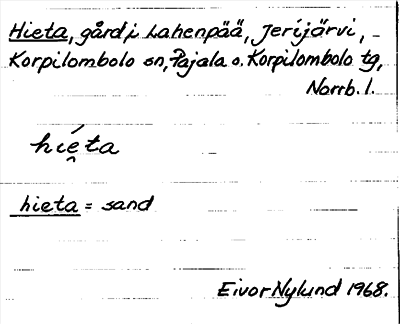 Hieta, gård i Lahenpää, Jerijärvi,
Korpilombolo sn, Pajala o. Korpilombolo tg,
Norrb. l.
híe̯ta
hieta = sand
Eivor Nylund 1968.